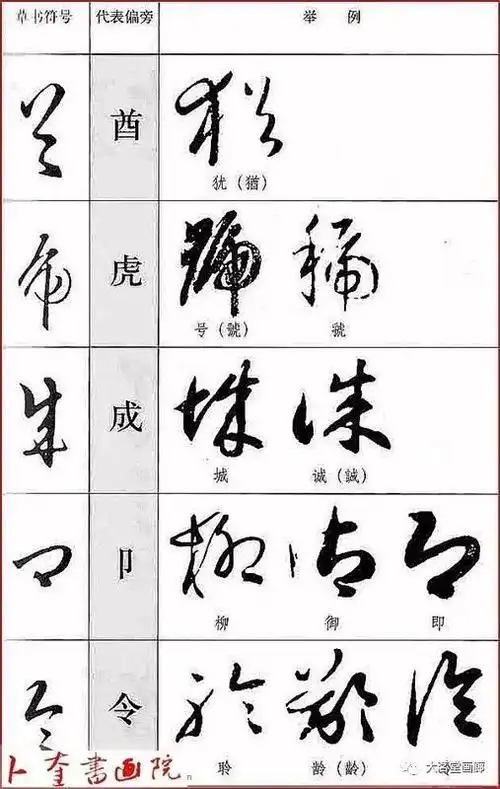 草书符号 代表偏旁 举例
酋
犹（猶）
虎
号（號） 號
成
城 诚（誠）
卩
柳 御 即
令
聆 龄（齡）
卜奎書画院